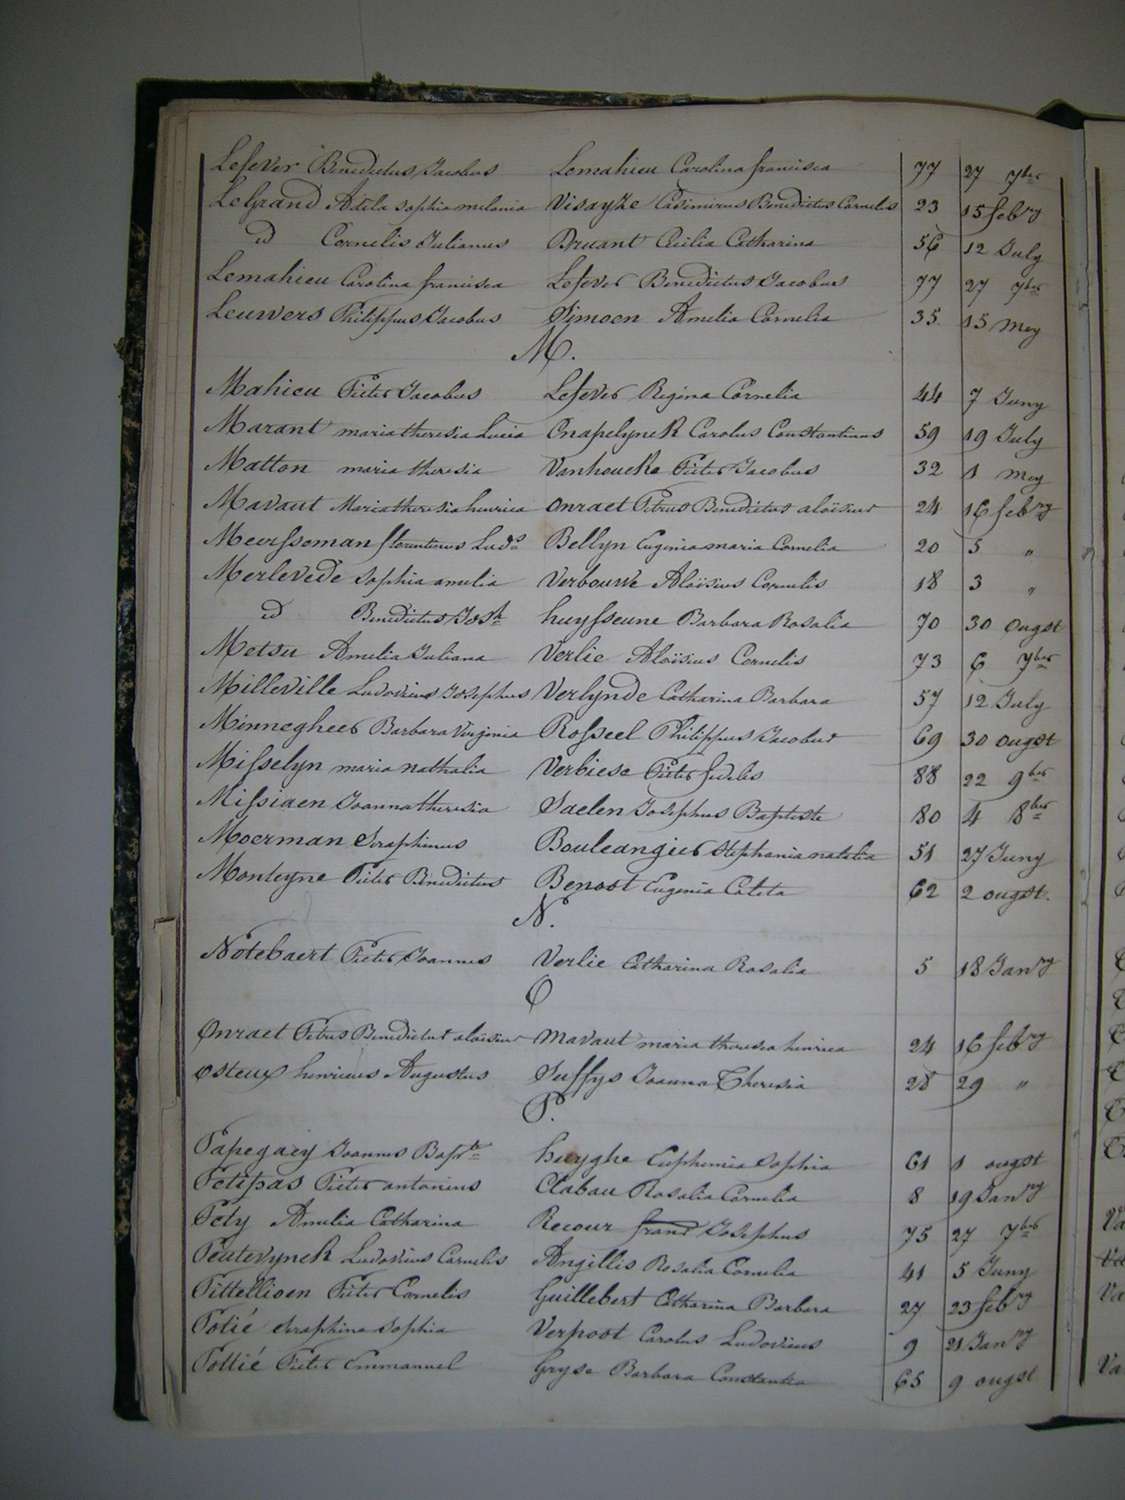 Lefever Benedictus Jacobus Lemahieu Carolina francisca 77 27 7ber
LeGrand Adela Sophia melania Visayze Casimirus Benedictus Cornelis 23 15 febry
id Cornelis Julianus Bruant Cecilia Catharina 56 12 July
Lemahieu Carolina francisca Lefever Benedictus Jacobus 77 27 7ber
Leuwers Philippus Jacobus Simoen Amelia Cornelia 35 15 mey
M.
Mahieu Pieter Jacobus Lefever Regina Cornelia 44 7 Juny
Marant maria theresia Lucia Cnapelynck Carolus Constantinus 59 19 July
Matton maria theresia Vanhoucke Pieter Jacobus 32 1 mey
Mavaut Maria theresia henrica Onraet Petrus Benedictus aloïsius 24 16 febry
Meurssoman florentinus Ludos Bellyn Eugenia maria Cornelia 20 5 "
Merlevede Sophia amelia Verbouwe Aloïsius Cornelis 18 3 "
id Benedictus Josh huysseune Barbara Rosalia 70 30 ougst
Metsu Amelia Juliana Verlie Aloïsius Cornelis 73 6 7ber
Milleville Ludovicus Josephus Verlynde Catharina Barbara 57 12 July
Minnegheer Barbara Virginia Rosseel Philippus Jacobus 69 30 ougst
Misselyn maria nathalia Verbiese Pieter fidelis 88 22 9ber
Missiaen Joanna theresia Saelen Josephus Baptiste 80 4 8ber
Moerman Seraphinus Bouleangier Stephania natalia 51 27 Juny
Monteyne Pieter Benedictus Benoot Eugenia Coleta 62 2 ougst.
N.
Notebaert Pieter Joannes Verlie Catharina Rosalia 5 18 Janry
O
Onraet Petrus Benedictus aloïsius Mavaut maria theresia henrica 24 16 febry
Osteux henricus Augustus Suffys Joanna Theresia 28 29 "
P.
Papegaey Joannes Bapte huyghe Euphemia Sophia 61 1 ougst
Petitpas Pieter antonius Clabau Rosalia Cornelia 8 19 Janry
Pety Amelia Catharina Recour frans Josephus 75 27 7ber
Peutevynck Ludovicus Cornelis Angillis Rosalia Cornelia 41 5 Juny
Pittellioen Pieter Cornelis Guillebert Catharina Barbara 27 23 febry
Potié Seraphina Sophia Verpoot Carolus Ludovicus 9 21 Janry
Pottié Pieter Emmanuel Gryse Barbara Constantia 65 9 ougst